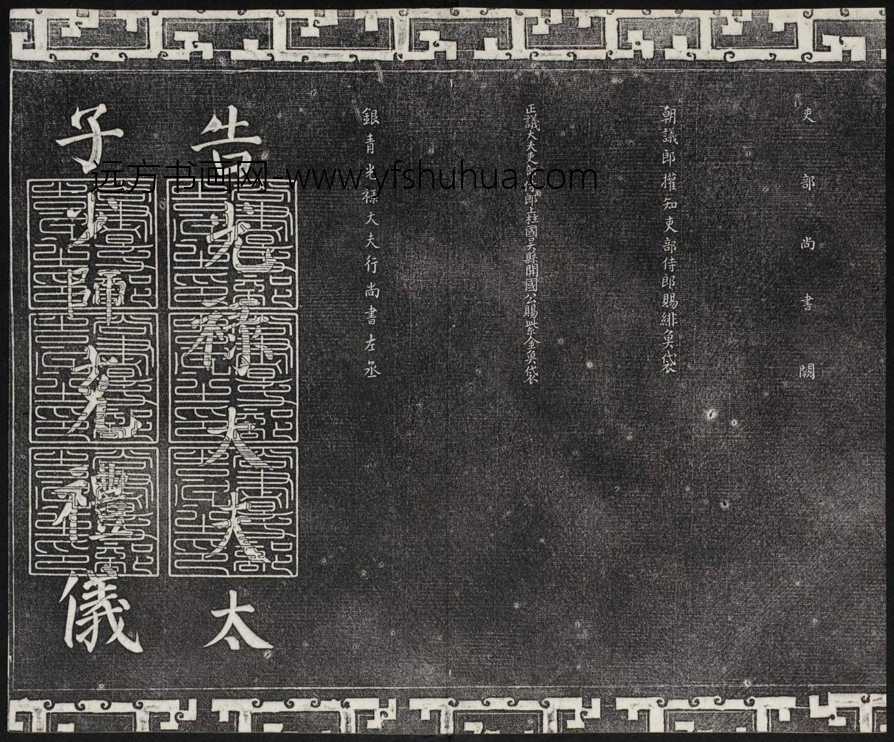 吏部尚書闕
朝議郎權知吏部侍郎賜緋魚袋
正議大夫吏部侍郎上柱國吳縣開國公賜紫金魚袋
銀青光祿大夫行尚書左丞
告光祿大夫太
子少師充禮儀
远方书画网-www.yfshuhua.com